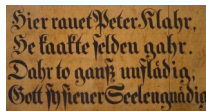 Hier rauet Peter Klahr,
He kaakte selden gahr.
Dahr to ganß unflädig,
Gott sy siener Seelen gnädig